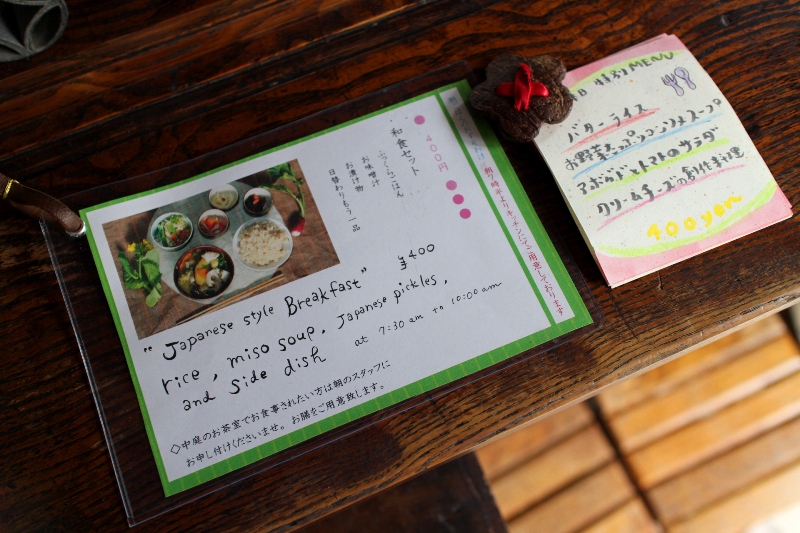 和食セット
400円
ふっくらごはん
お味噌汁
お漬け物
日替わりもう一品
朝7時半よりキッチンにてご用意しております
"Japanese style Breakfast" ¥400
rice, miso soup, Japanese pickles,
and side dish at 7:30 am to 10:00 am
◇中庭のお茶室でお食事されたい方は朝のスタッフに
お申し付けくださいませ。お膳をご用意致します。
日 特別MENU
バターライス
お野菜たっぷりコンソメスープ
アボカドとトマトのサラダ
クリームチーズの創作料理
400yen